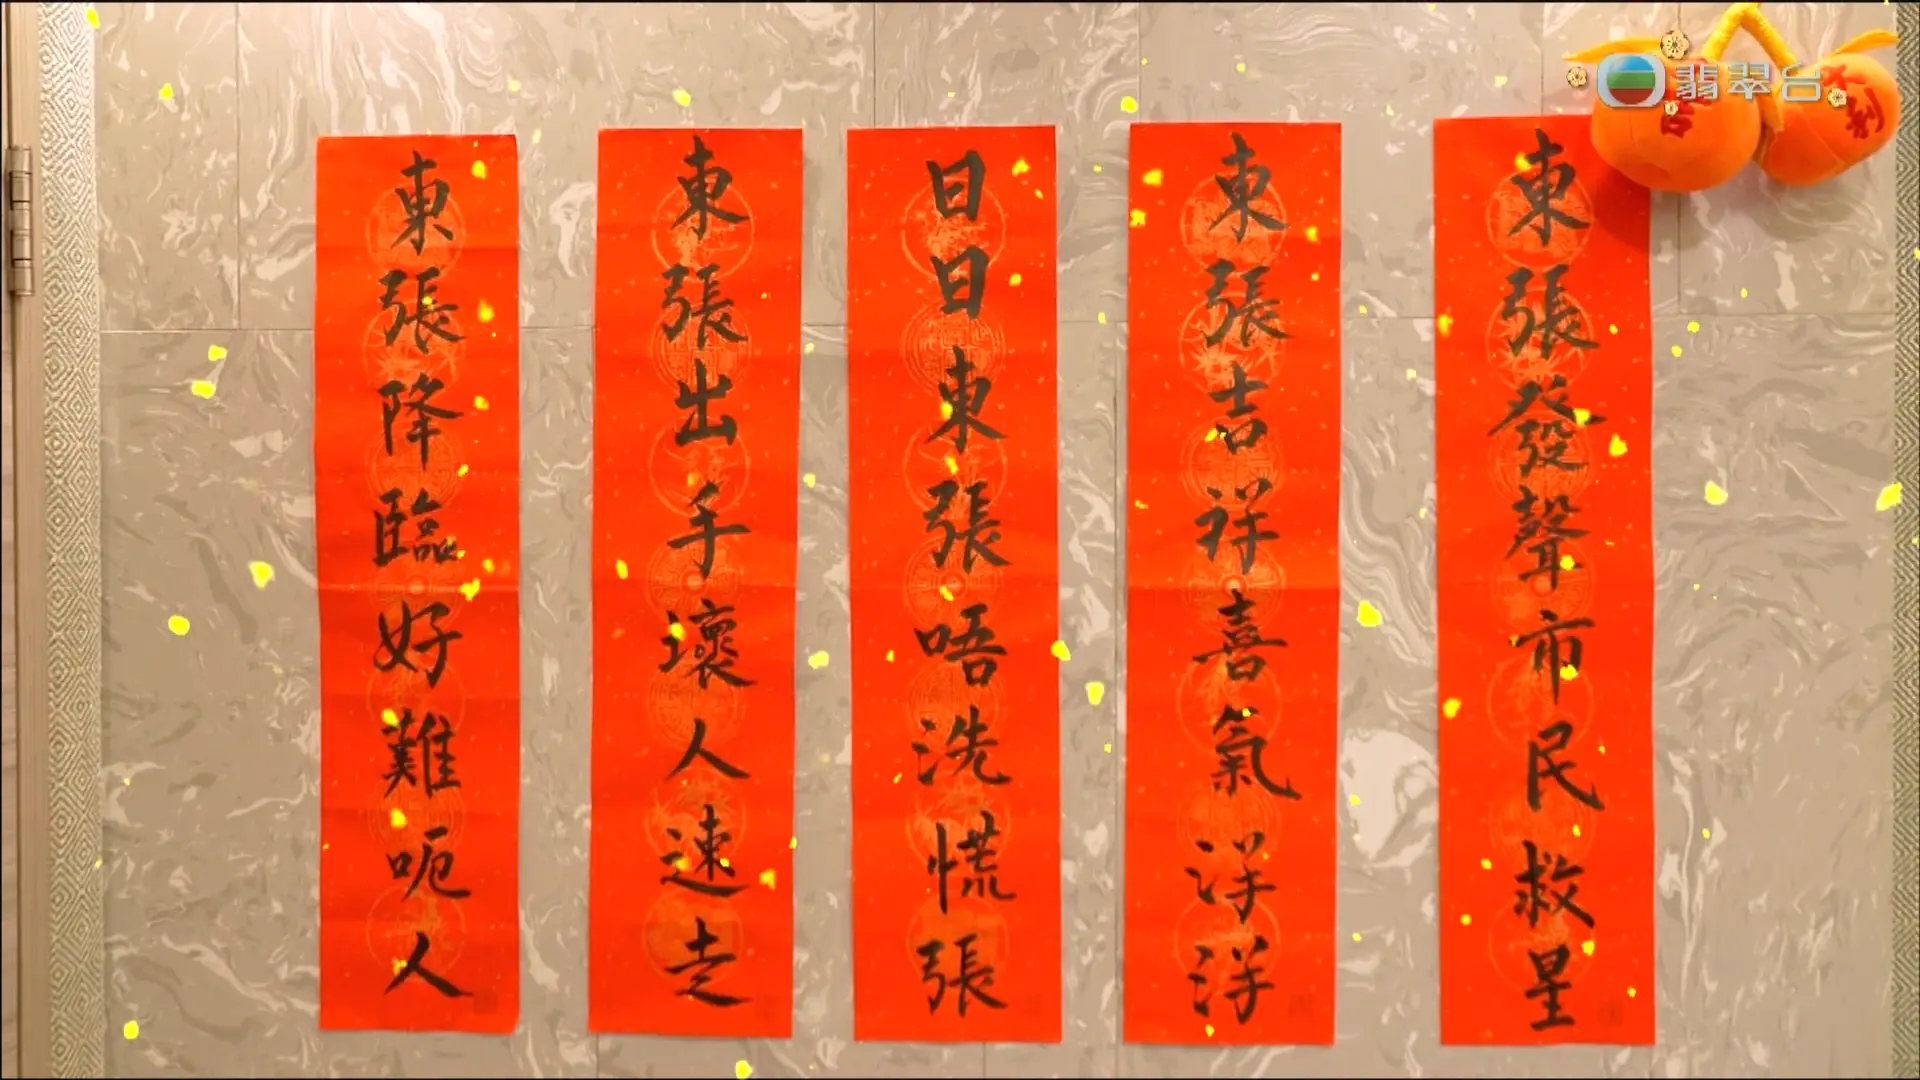 東張發聲市民救星
東張吉祥喜氣洋洋
日日東張唔洗慌張
東張出手壞人速走
東張降臨好難呃人
翡翠台
吉
利